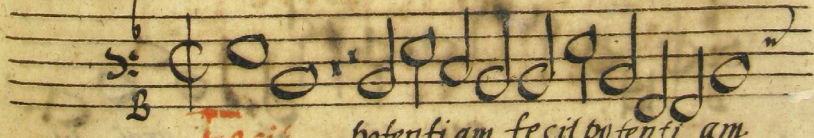 B
potenti am fecit potenti am